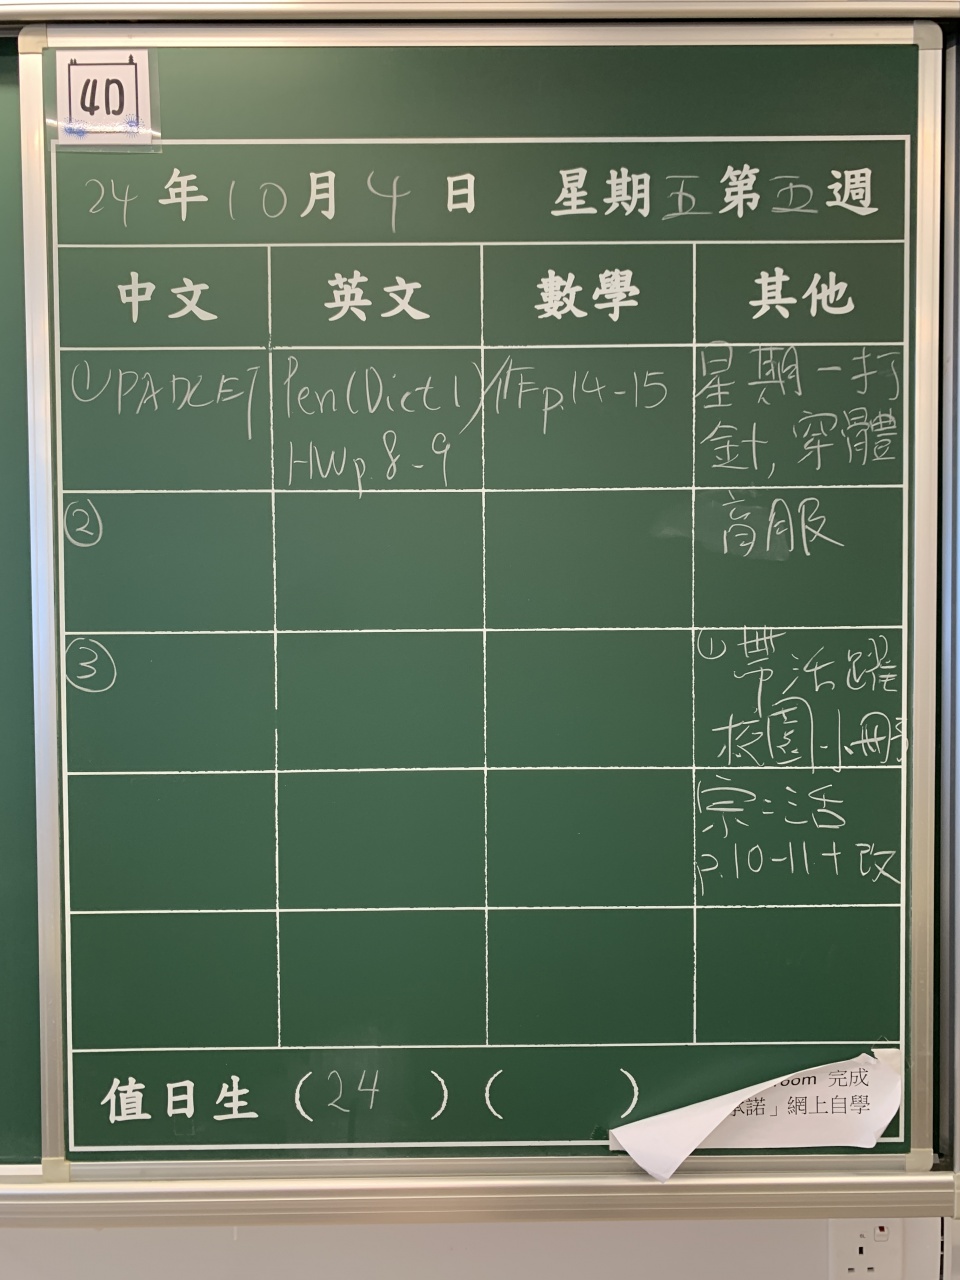 4D
24年10月4日 星期五第五週
中文 英文 數學 其他
①PADLET
Pen(Dict 1)
HWp.8-9
作Fp.14-15
星期一打
針,穿體
育服
②
③
①帶活躍
校園小冊子
宗:活
p.10-11+改
值日生(24)( )
room 完成
承諾」網上自學